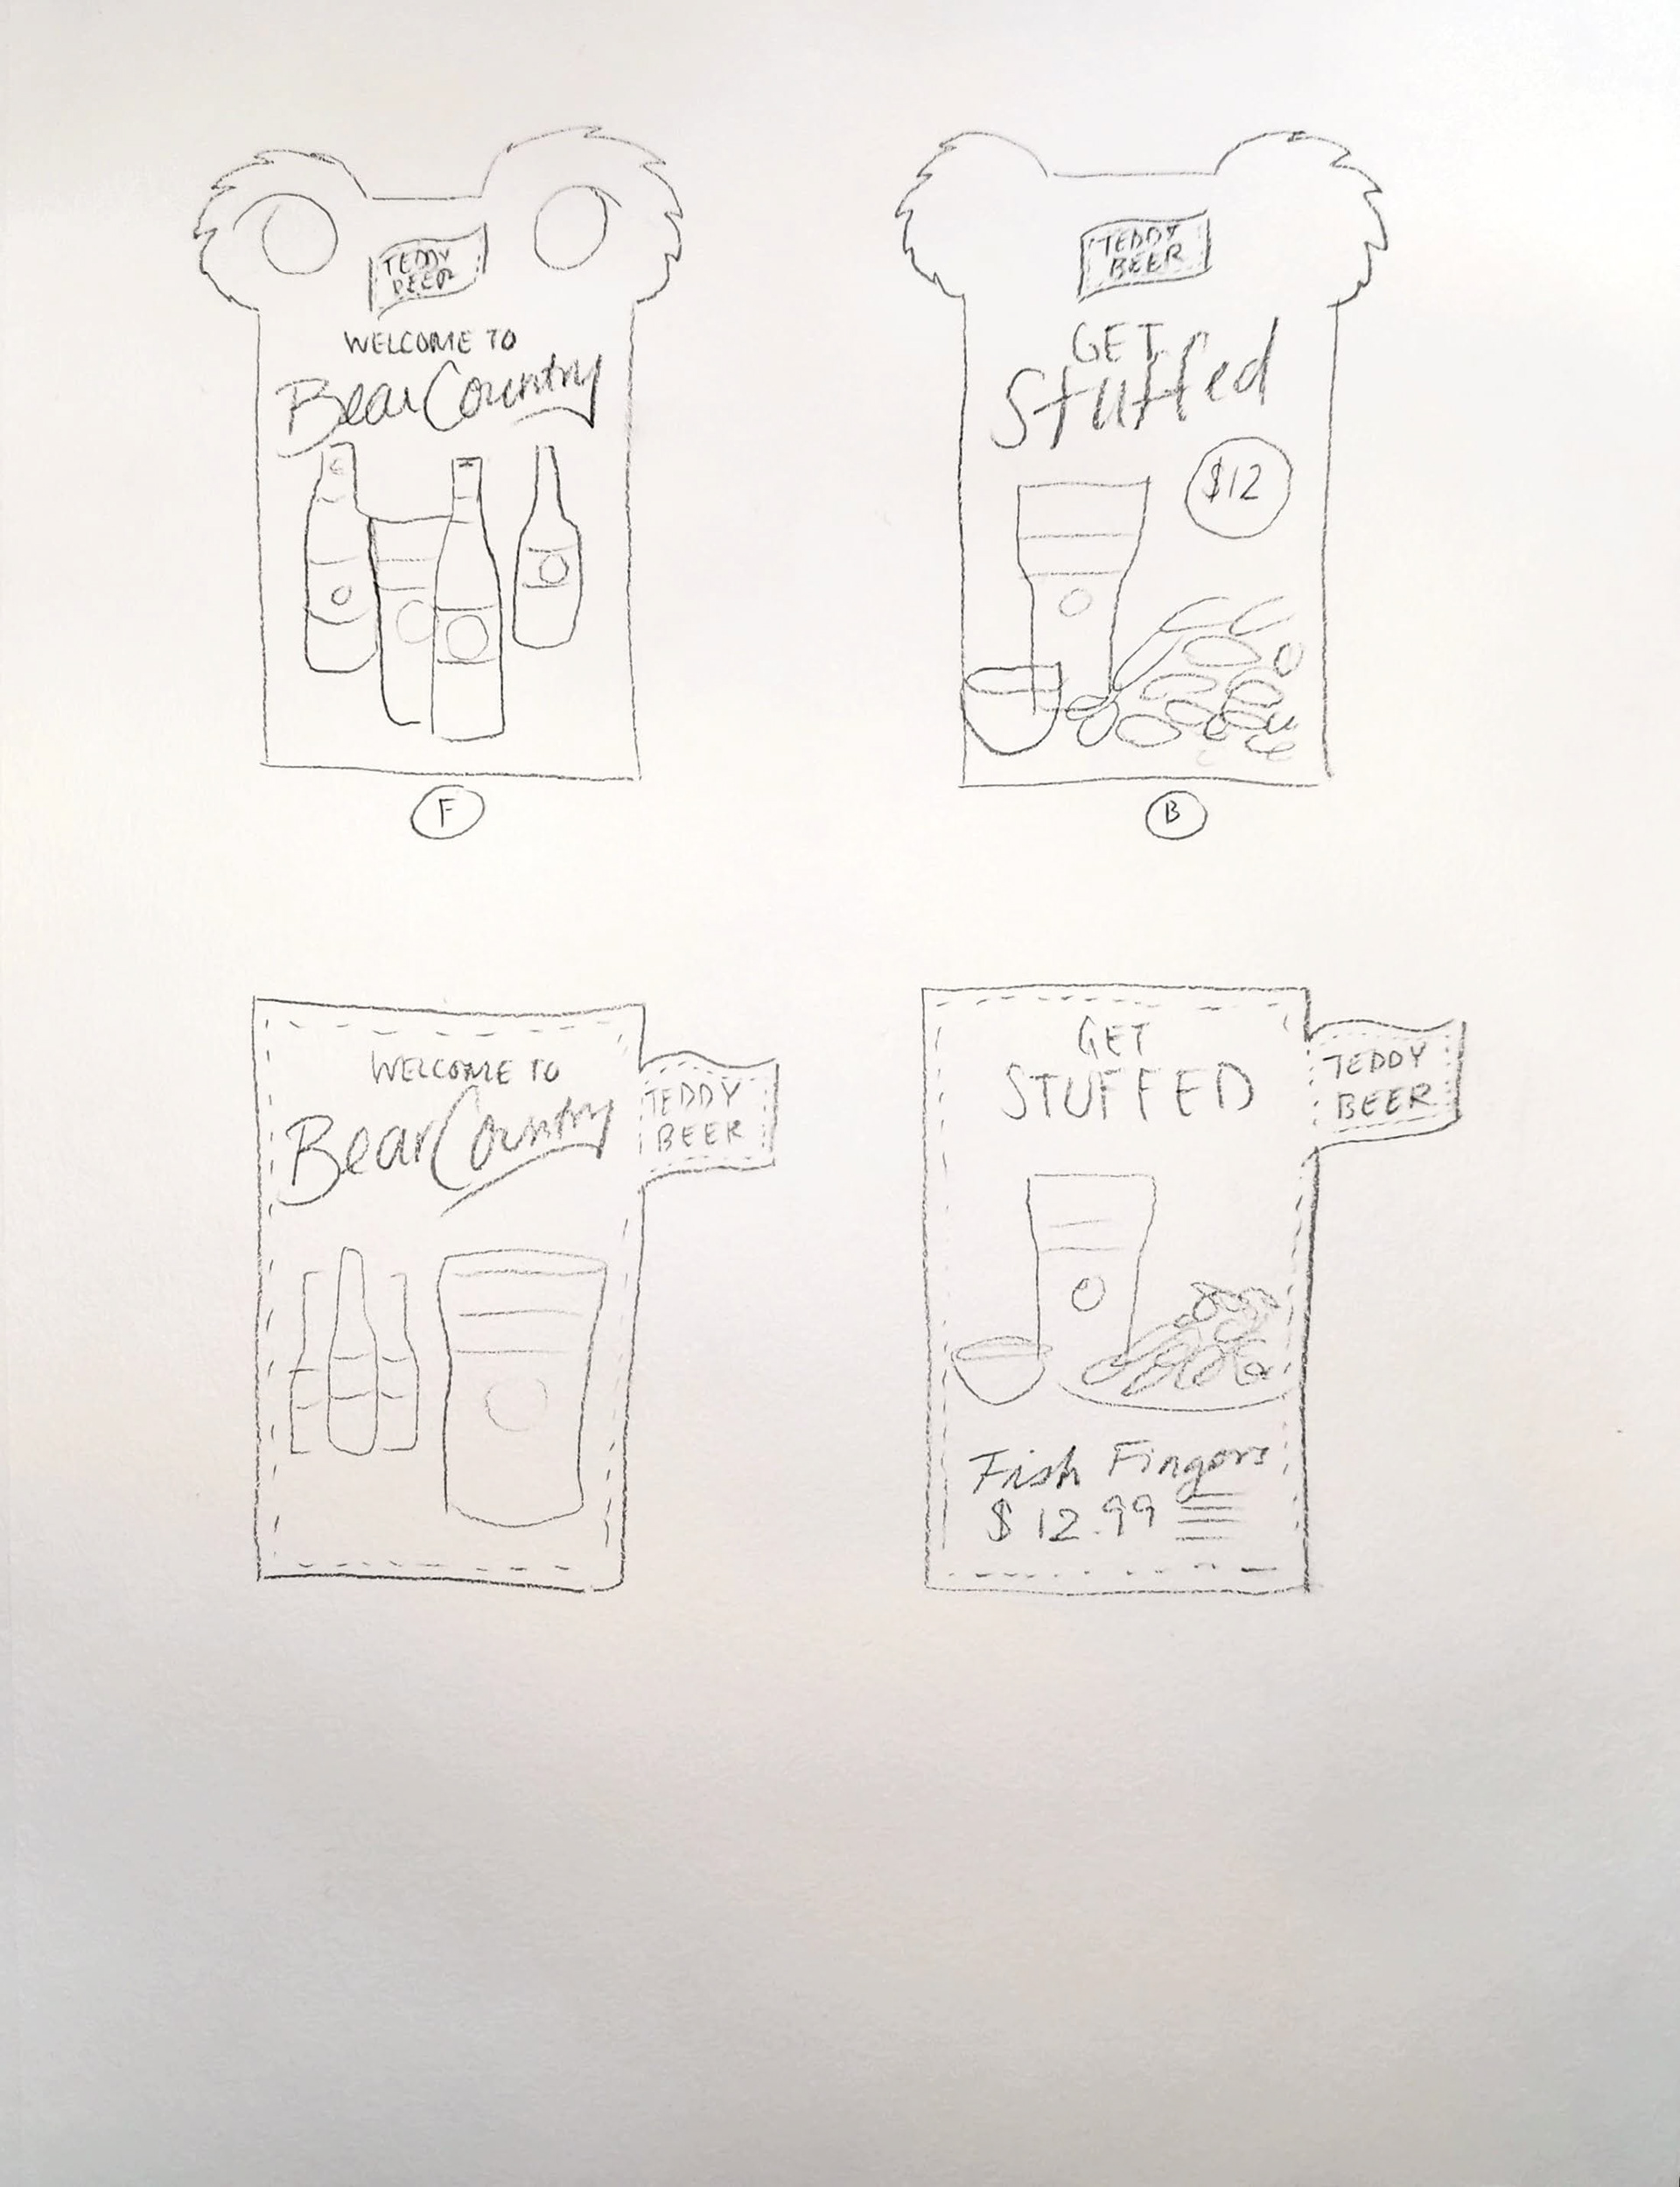 TEDDY
BEER
WELCOME TO
Bear Country
F
TEDDY
BEER
GET
Stuffed
$12
B
WELCOME TO
Bear Country
TEDDY
BEER
GET
STUFFED
TEDDY
BEER
Fish Fingers
$12.99